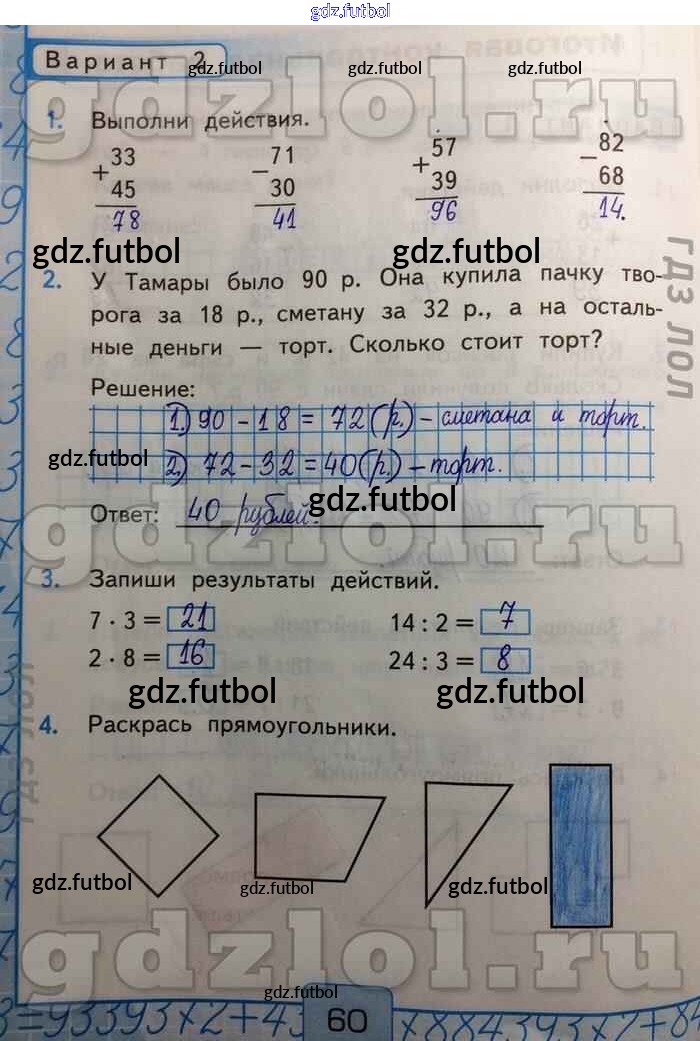 gdz.futbol
Вариант 2
gdz.futbol gdz.futbol
gdzlol.ru
1. Выполни действия.
+ 33 − 71 + 57 − 82
45 30 39 68
78 41 96 14.
gdz.futbol gdz.futbol
2. У Тамары было 90 р. Она купила пачку тво-
рога за 18 р., сметану за 32 р., а на осталь-
ные деньги — торт. Сколько стоит торт?
гдз лол
Решение:
1) 90 - 18 = 72 (р.) - сметана и торт.
gdz.futbol
2) 72 - 32 = 40 (р.) - торт.
Ответ: 40 рублей.
gdz.futbol
gdzlol.ru
3. Запиши результаты действий.
7 · 3 = 21 14 : 2 = 7
2 · 8 = 16 24 : 3 = 8
gdz.futbol gdz.futbol
гдз лол
4. Раскрась прямоугольники.
gdz.futbol gdz.futbol gdz.futbol
gdzlol.ru
gdz.futbol
3=93393×2+43 60 ×884393×7+84